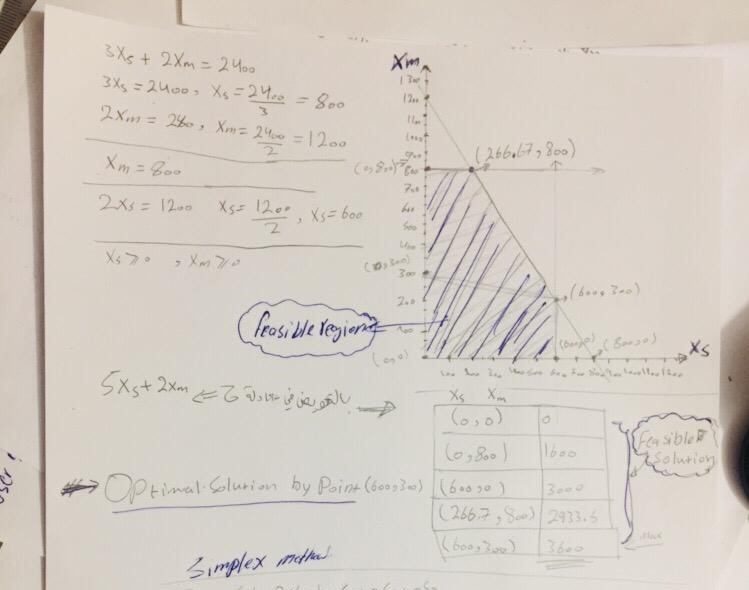 3Xs + 2Xm = 2400
3Xs = 2400, Xs = 2400/3 = 800
2Xm = 240, Xm = 2400/2 = 1200
Xm = 800
2Xs = 1200 Xs = 1200/2, Xs = 600
Xs ≥ 0, Xm ≥ 0
Xm
1300
1200
1100
1000
900
800
700
600
500
400
300
200
100
(0,800)
(266.67, 800)
(600,300)
(600,0)
(800,0)
(0,0)
Xs
feasible region
5Xs + 2Xm
بالتعويض في
Xs Xm
(0,0) 0
(0,800) 1600
(600,0) 3000
(266.7, 800) 2933.5
(600,300) 3600
Feasible
Solution
Max
Optimal Solution by Point (600,300)
Simplex method